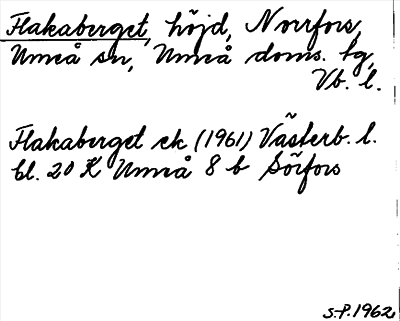 Flakaberget, höjd, Norrfors,
Umeå sn, Umeå doms. tg,
Vb. l.
Flakaberget ek (1961) Västerb. l.
bl. 20 K Umeå 8 b Sörfors
S.P. 1962